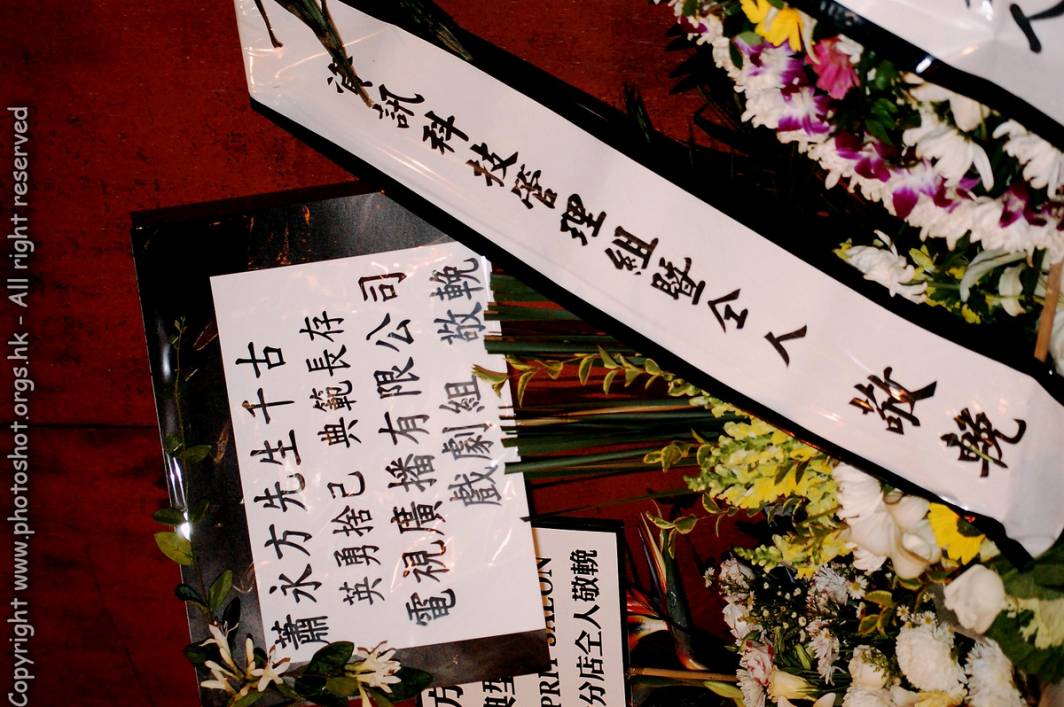 Copyright www.photoshot.orgs.hk - All right reserved
資訊科技管理組暨仝人
敬輓
蕭永方先生千古
英勇捨己 典範長存
電視廣播有限公司
戲劇組 敬輓
分店仝人敬輓